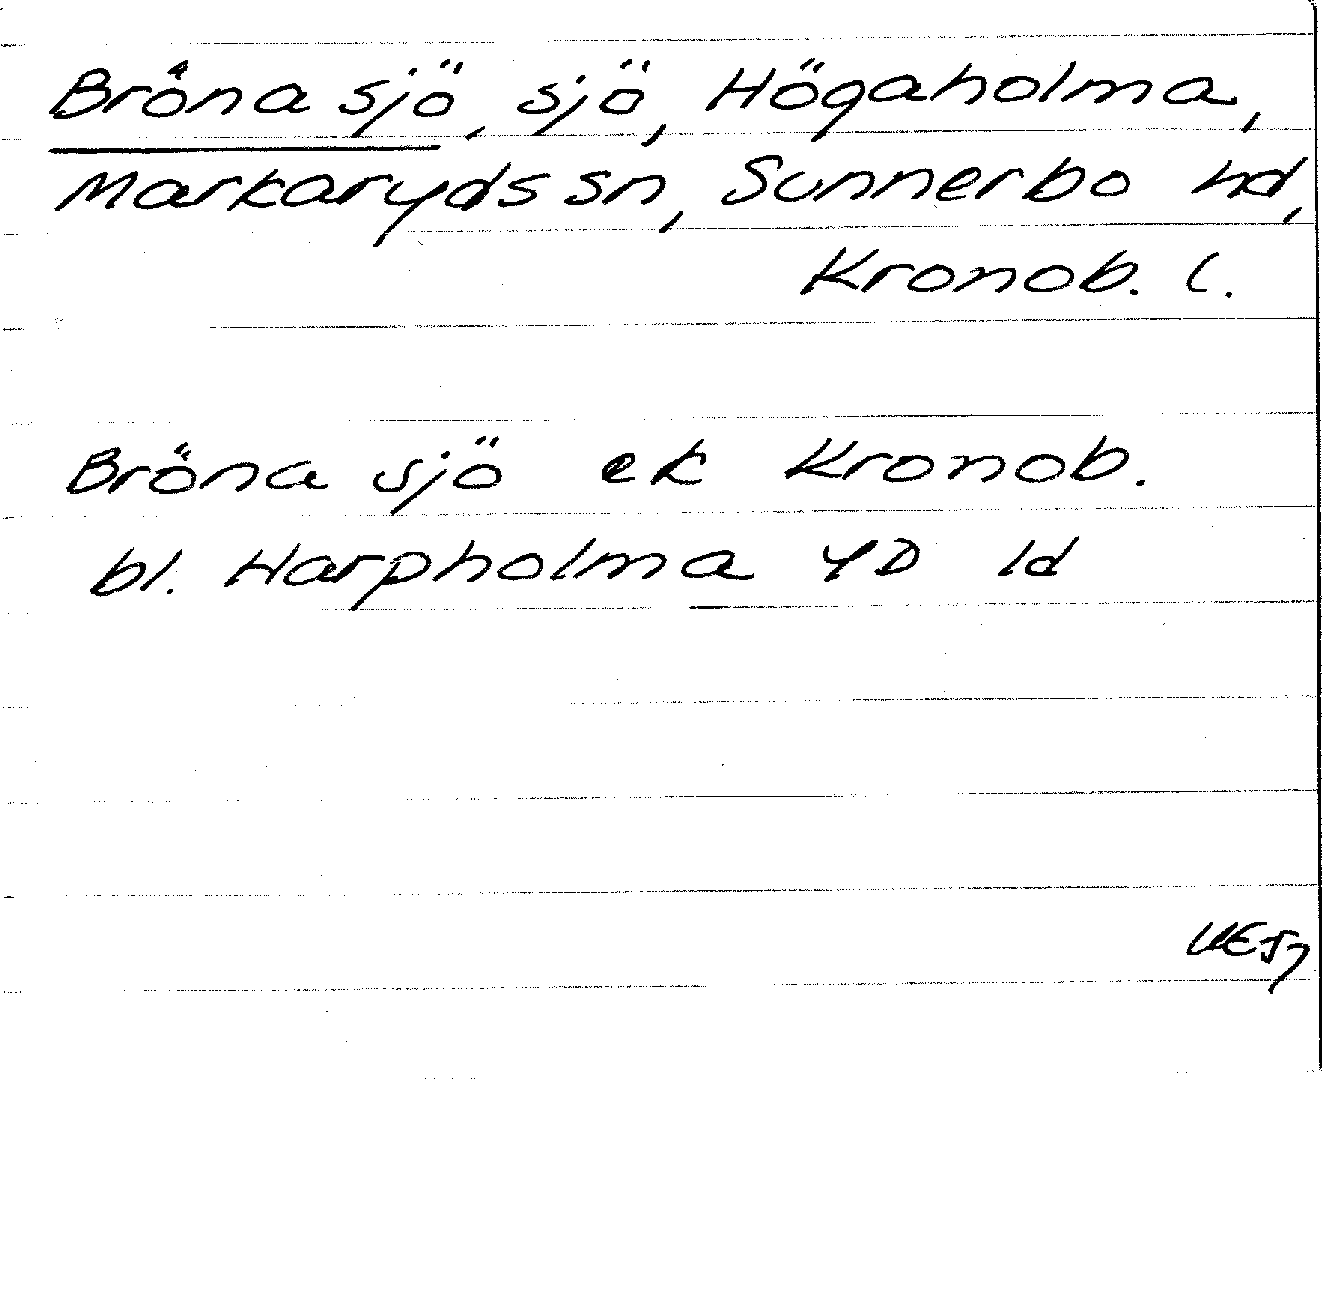 Bröna sjö, sjö, Högaholma,
Markaryds sn, Sunnerbo hd,
Kronob. l.
Bröna sjö ek Kronob.
bl. Harpholma 4D 1d